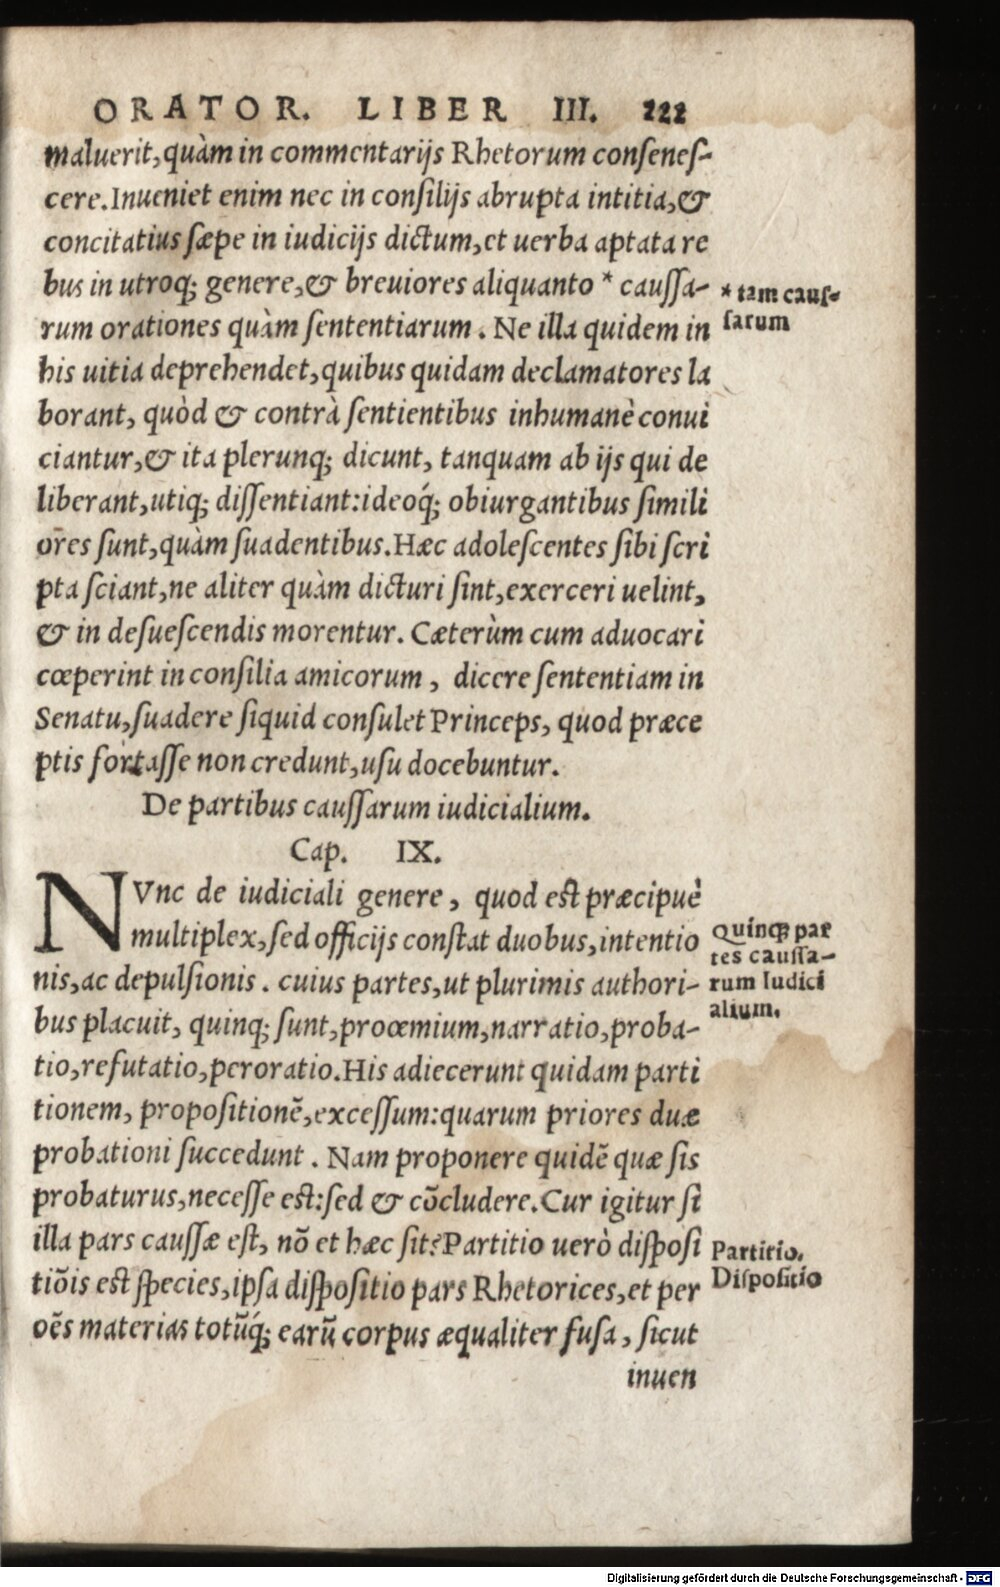 ORATOR. LIBER III. 222
maluerit, quàm in commentarijs Rhetorum conseneſ-
cere. Inueniet enim nec in conſilijs abrupta intitia, &
concitatius ſæpe in iudicijs dictum, et uerba aptata re
bus in utroq; genere, & breuiores aliquanto * cauſſa-
rum orationes quàm ſententiarum. Ne illa quidem in
his uitia deprehendet, quibus quidam declamatores la
borant, quòd & contrà ſentientibus inhumanè conui
ciantur, & ita plerunq; dicunt, tanquam ab ijs qui de
liberant, utiq; diſſentiant: ideoq́; obiurgantibus ſimili
ores ſunt, quàm ſuadentibus. Hæc adoleſcentes ſibi ſcri
pta ſciant, ne aliter quàm dicturi ſint, exerceri uelint,
& in deſueſcendis morentur. Cæterùm cum aduocari
cœperint in conſilia amicorum, dicere ſententiam in
Senatu, ſuadere ſiquid conſulet Princeps, quod præce
ptis fortaſſe non credunt, uſu docebuntur.
* tam cauſ-
ſarum
De partibus cauſſarum iudicialium.
Cap. IX.
NVnc de iudiciali genere, quod est præcipuè
multiplex, ſed officijs conſtat duobus, intentio
nis, ac depulſionis. cuius partes, ut plurimis authori-
bus placuit, quinq; ſunt, proœmium, narratio, proba-
tio, refutatio, peroratio. His adiecerunt quidam parti
tionem, propoſitionē, exceſſum: quarum priores duæ
probationi ſuccedunt. Nam proponere quidē quæ ſis
probaturus, neceſſe eſt: ſed & cōcludere. Cur igitur ſi
illa pars cauſſæ eſt, nō et hæc ſit? Partitio uerò diſpoſi
tiōis eſt ſpecies, ipſa diſpoſitio pars Rhetorices, et per
oēs materias totūq́; earū corpus æqualiter fuſa, ſicut
inuen
Quinq; par
tes cauſſa-
rum Iudici
alium.
Partitio.
Diſpoſitio
Digitalisierung gefördert durch die Deutsche Forschungsgemeinschaft - DFG